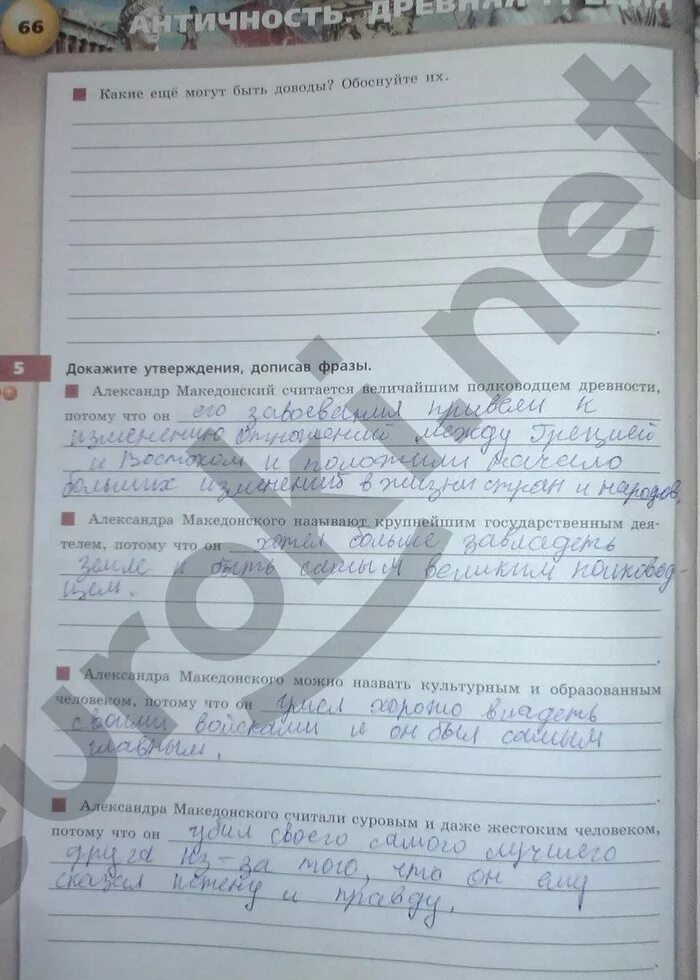 66
АНТИЧНОСТЬ. ДРЕВНЯЯ ГРЕЦИЯ
Какие ещё могут быть доводы? Обоснуйте их.
5
Докажите утверждения, дописав фразы.
Александр Македонский считается величайшим полководцем древности,
потому что он его завоевания привели к
изменению отношений между Грецией
и Востоком и положили начало
больших изменений в жизни стран и народов.
Александра Македонского называют крупнейшим государственным дея-
телем, потому что он хотел больше завладеть
земле и быть самым великим полковод-
цем.
Александра Македонского можно назвать культурным и образованным
человеком, потому что он умел хорошо владеть
своими войсками и он был самым
главным.
Александра Македонского считали суровым и даже жестоким человеком,
потому что он убил своего самого лучшего
друга из-за того, что он ему
сказал истену и правду.
euroki.net